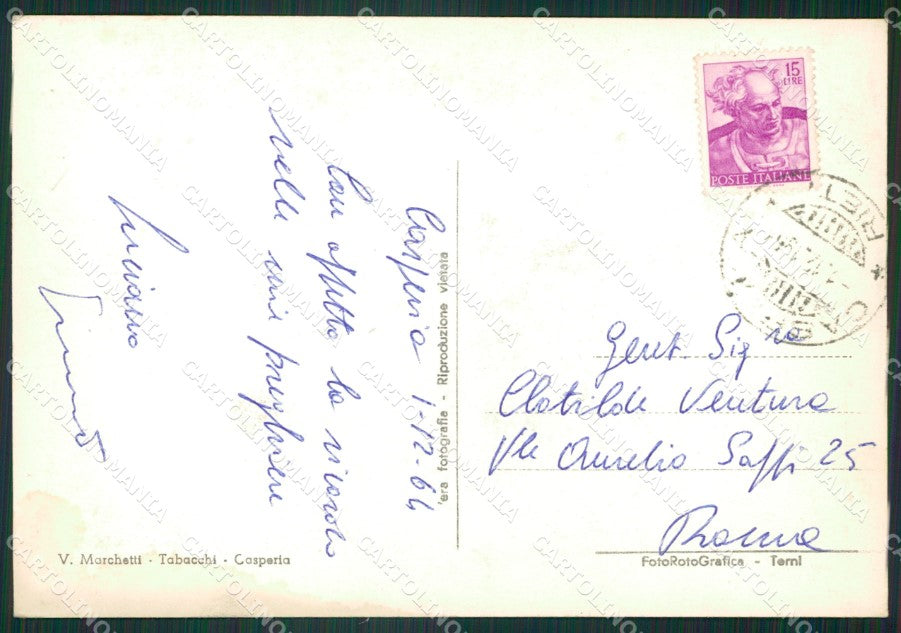 15
LIRE
POSTE ITALIANE
RIETI
Casperia 1-12-64
Con affetto la ricordo
nelle mie preghiere
Luciano
Gent. Sig ra
Clotilde Ventura
Vle Aurelio Saffi 25
Roma
V. Marchetti - Tabacchi - Casperia
'era fotografia - Riproduzione vietata
FotoRotoGrafica - Terni
CARTOLINOMANIA